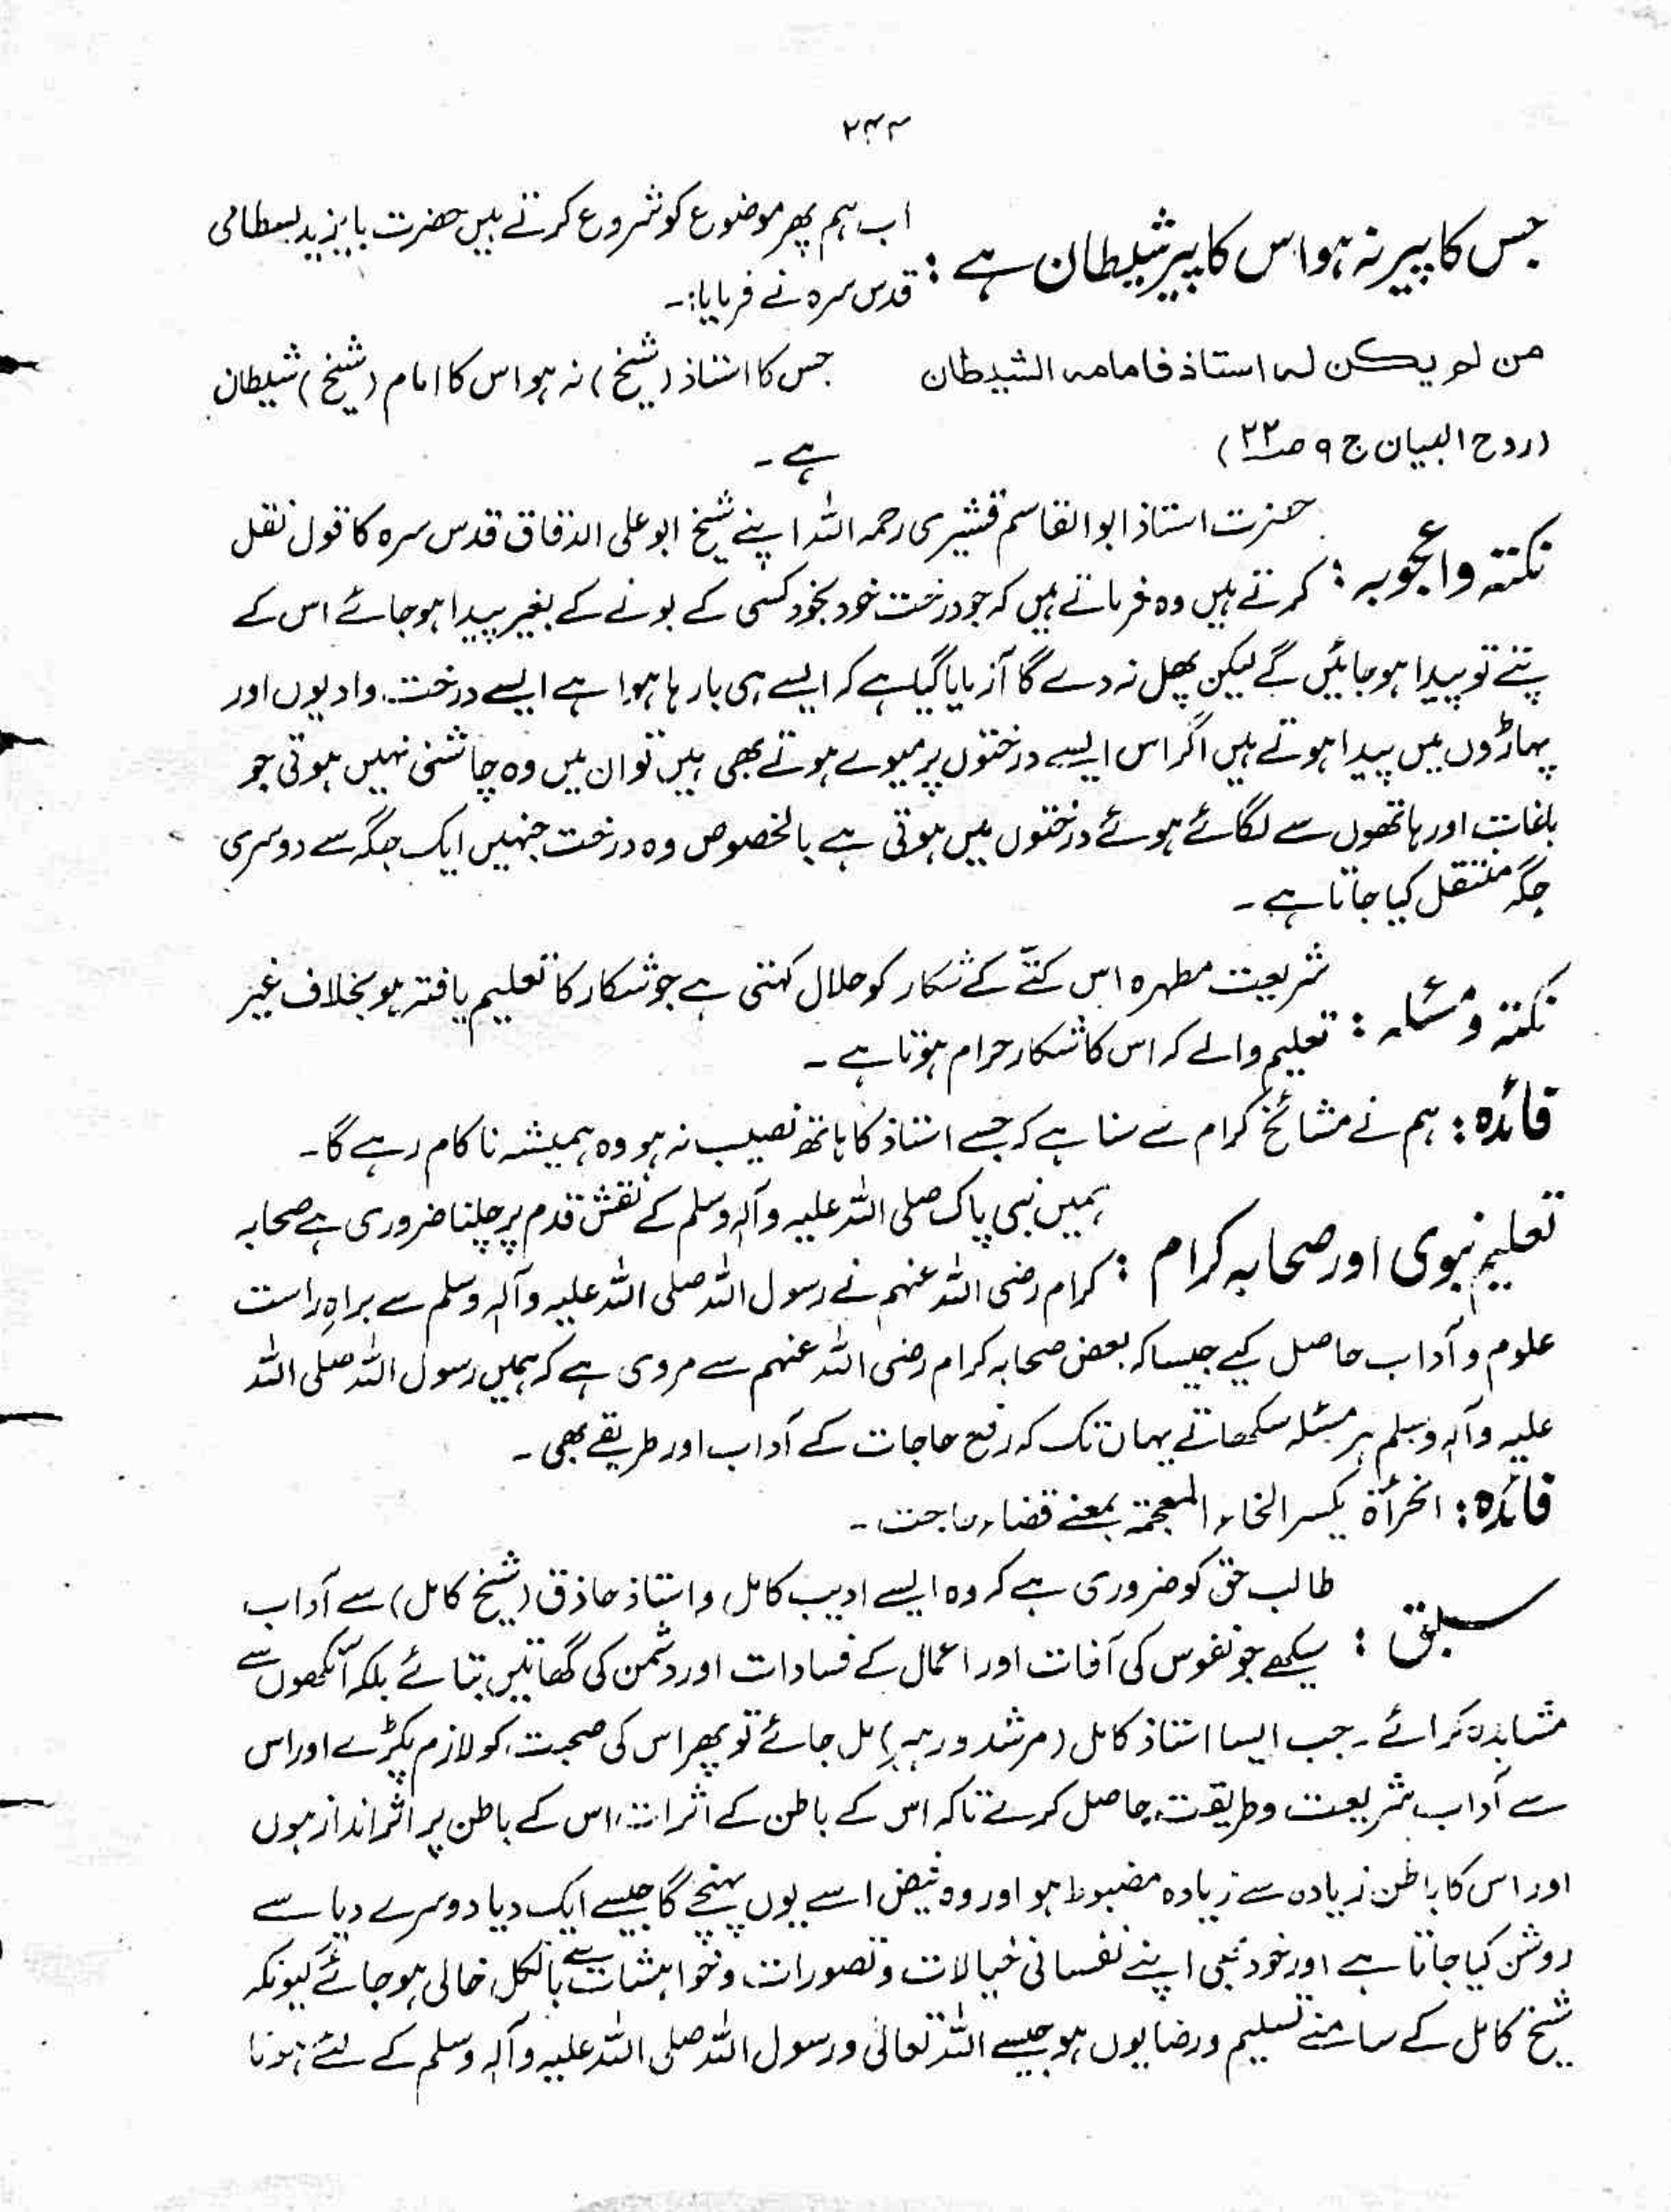 ۲۴۴
جس کا پیر نہ ہو اس کا پیر شیطان ہے : اب ہم پھر موضوع کو شروع کرتے ہیں حضرت بایزید بسطامی
قدس سرہ نے فرمایا:۔
من لم یکن لہ استاذ فامامہ الشیطان
(روح البیان ج ۹ صـ۲۲)
جس کا استاذ (شیخ) نہ ہو اس کا امام (شیخ) شیطان
ہے ۔
نکتہ و اعجوبہ : حضرت استاذ ابوالقاسم قشیری رحمہ اللہ اپنے شیخ ابو علی الدقاق قدس سرہ کا قول نقل
کرتے ہیں وہ فرماتے ہیں کہ جو درخت خود بخود کسی کے بونے کے بغیر پیدا ہو جائے اس کے
پتے تو پیدا ہو جائیں گے لیکن پھل نہ دے گا آزمایا گیا ہے کہ ایسے ہی بارہا ہوا ہے ایسے درخت وادیوں اور
پہاڑوں میں پیدا ہوتے ہیں اگر اس ایسے درختوں پر میوے ہوتے بھی ہیں تو ان میں وہ چاشنی نہیں ہوتی جو
باغات اور ہاتھوں سے لگائے ہوئے درختوں میں ہوتی ہے بالخصوص وہ درخت جنہیں ایک جگہ سے دوسری
جگہ منتقل کیا جاتا ہے ۔
نکتہ و مسئلہ : شریعت مطہرہ اس کتّے کے شکار کو حلال کہتی ہے جو شکار کا تعلیم یافتہ ہو بخلاف غیر
تعلیم والے کہ اس کا شکار حرام ہوتا ہے ۔
فائدہ : ہم نے مشائخ کرام سے سنا ہے کہ جسے استاذ کا ہاتھ نصیب نہ ہو وہ ہمیشہ ناکام رہے گا ۔
تعلیم نبوی اور صحابہ کرام : ہمیں نبی پاک صلی اللہ علیہ وآلہ وسلم کے نقش قدم پر چلنا ضروری ہے صحابہ
کرام رضی اللہ عنہم نے رسول اللہ صلی اللہ علیہ وآلہ وسلم سے براہِ راست
علوم و آداب حاصل کیے جیسا کہ بعض صحابہ کرام رضی اللہ عنہم سے مروی ہے کہ ہمیں رسول اللہ صلی اللہ
علیہ وآلہ وسلم ہر مسئلہ سکھاتے یہاں تک کہ رفع حاجات کے آداب اور طریقے بھی ۔
فائدہ : الخرأۃ بکسر الخاء المعجمۃ بمعنے قضاء حاجت ۔
سبق : طالب حق کو ضروری ہے کہ وہ ایسے ادیب کامل و استاذ حاذق (شیخ کامل) سے آداب
سیکھے جو نفوس کی آفات اور اعمال کے فسادات اور دشمن کی گھاتیں بتائے بلکہ آنکھوں سے
مشاہدہ کرائے ۔ جب ایسا استاذ کامل (مرشد و رہبر) مل جائے تو پھر اس کی صحبت کو لازم پکڑے اور اس
سے آداب شریعت و طریقت حاصل کرے تاکہ اس کے باطن کے اثرات اس کے باطن پر اثر انداز ہوں
اور اس کا باطن زیادہ سے زیادہ مضبوط ہو اور وہ فیض اسے یوں پہنچے گا جیسے ایک دیا دوسرے دیا سے
روشن کیا جاتا ہے اور خود بھی اپنے نفسانی خیالات و تصورات و خواہشات سے بالکل خالی ہو جائے کیونکہ
شیخ کامل کے سامنے تسلیم و رضا یوں ہو جیسے اللہ تعالیٰ و رسول اللہ صلی اللہ علیہ وآلہ وسلم کے لئے ہونا